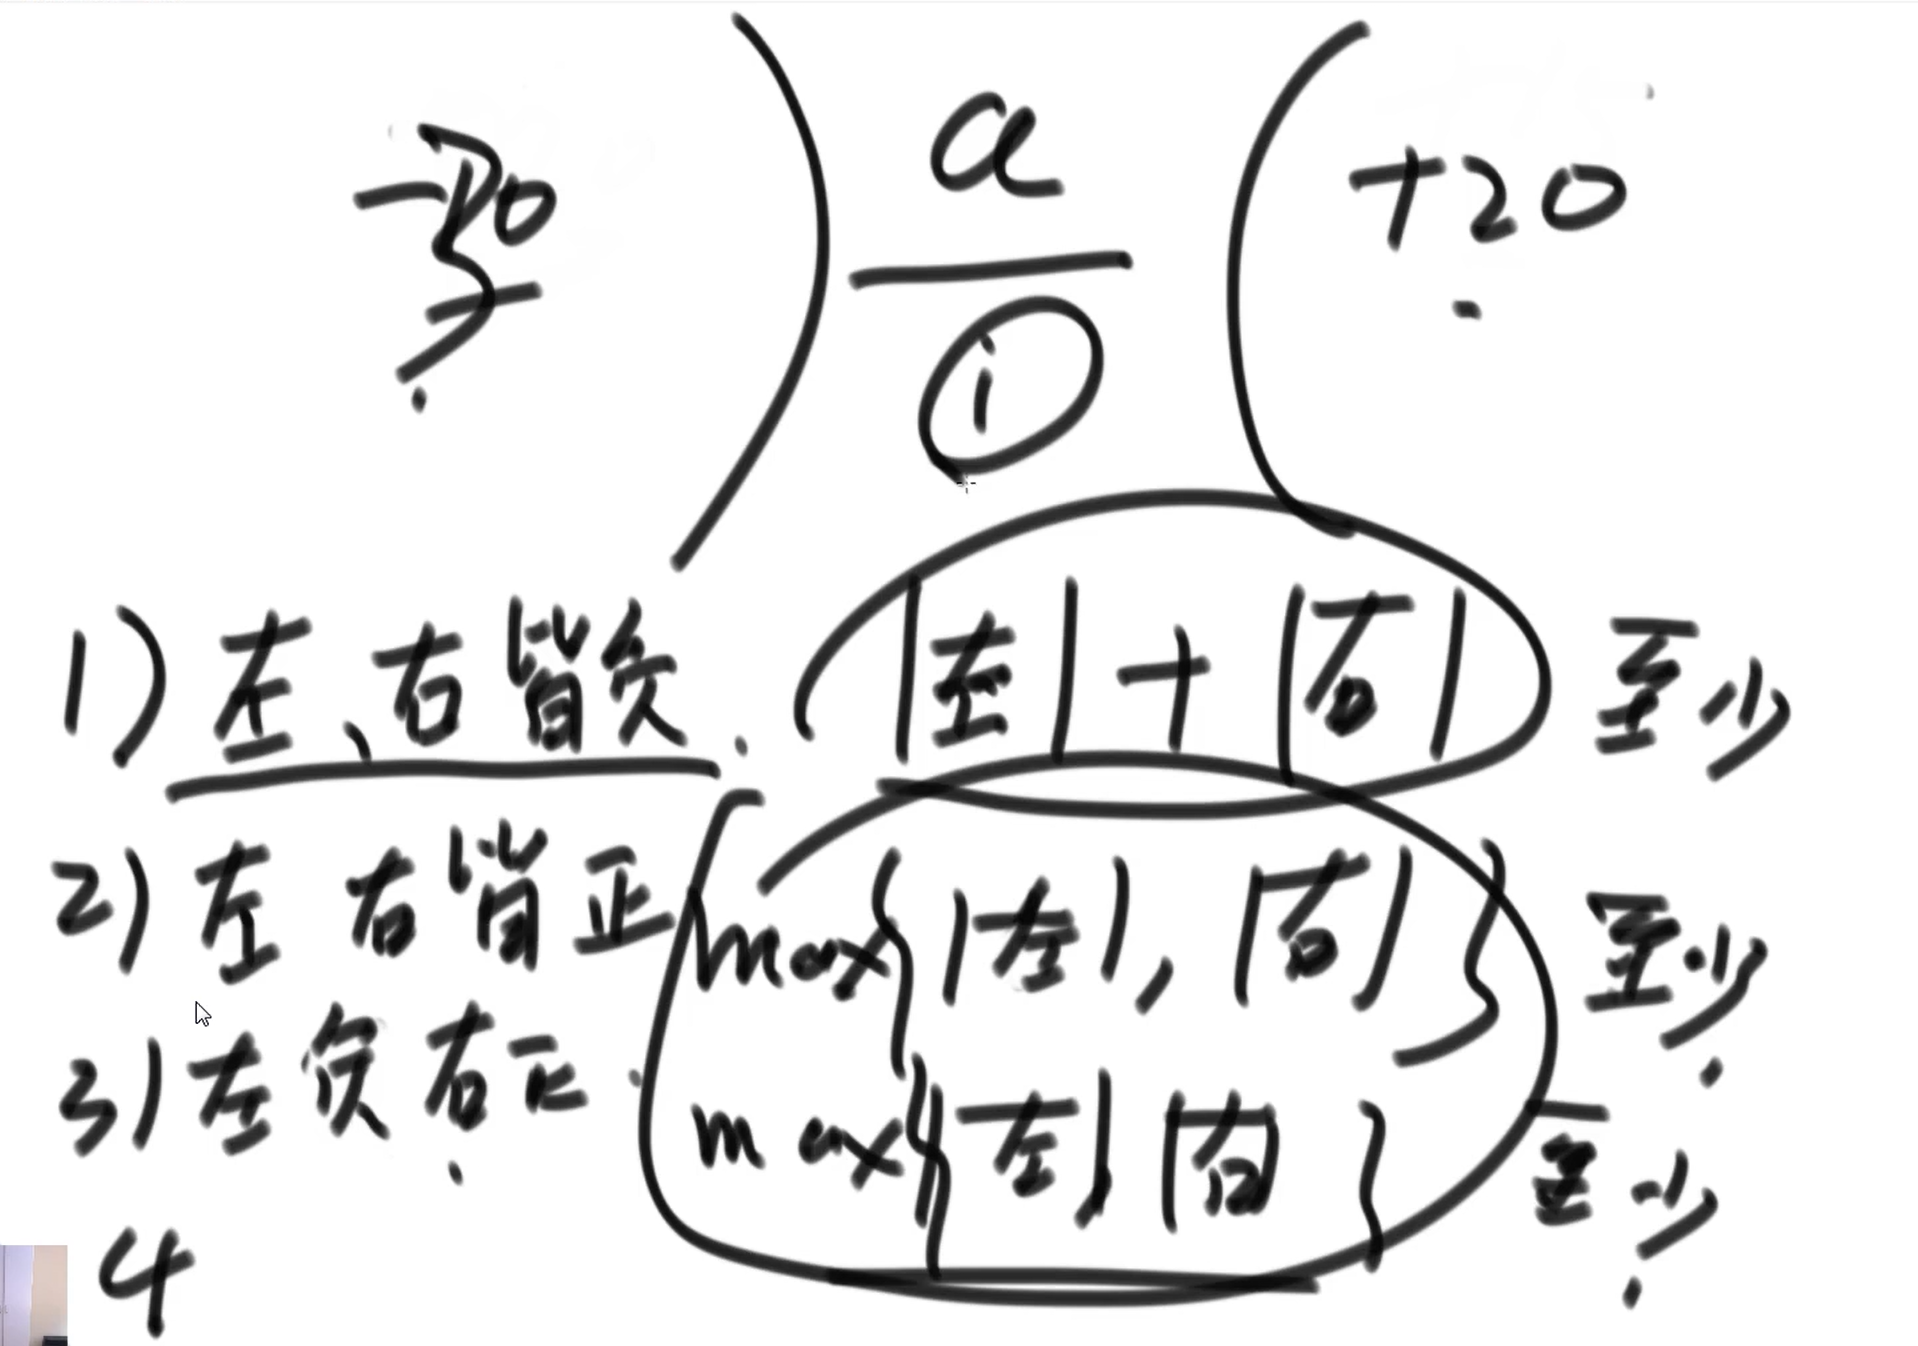 a
+20
i
1) 左、右皆负. |左| + |右| 至少
2) 左 右皆正 max{|左|, |右|} 至少.
3) 左负右正. max{|左| |右|} 至少.
4